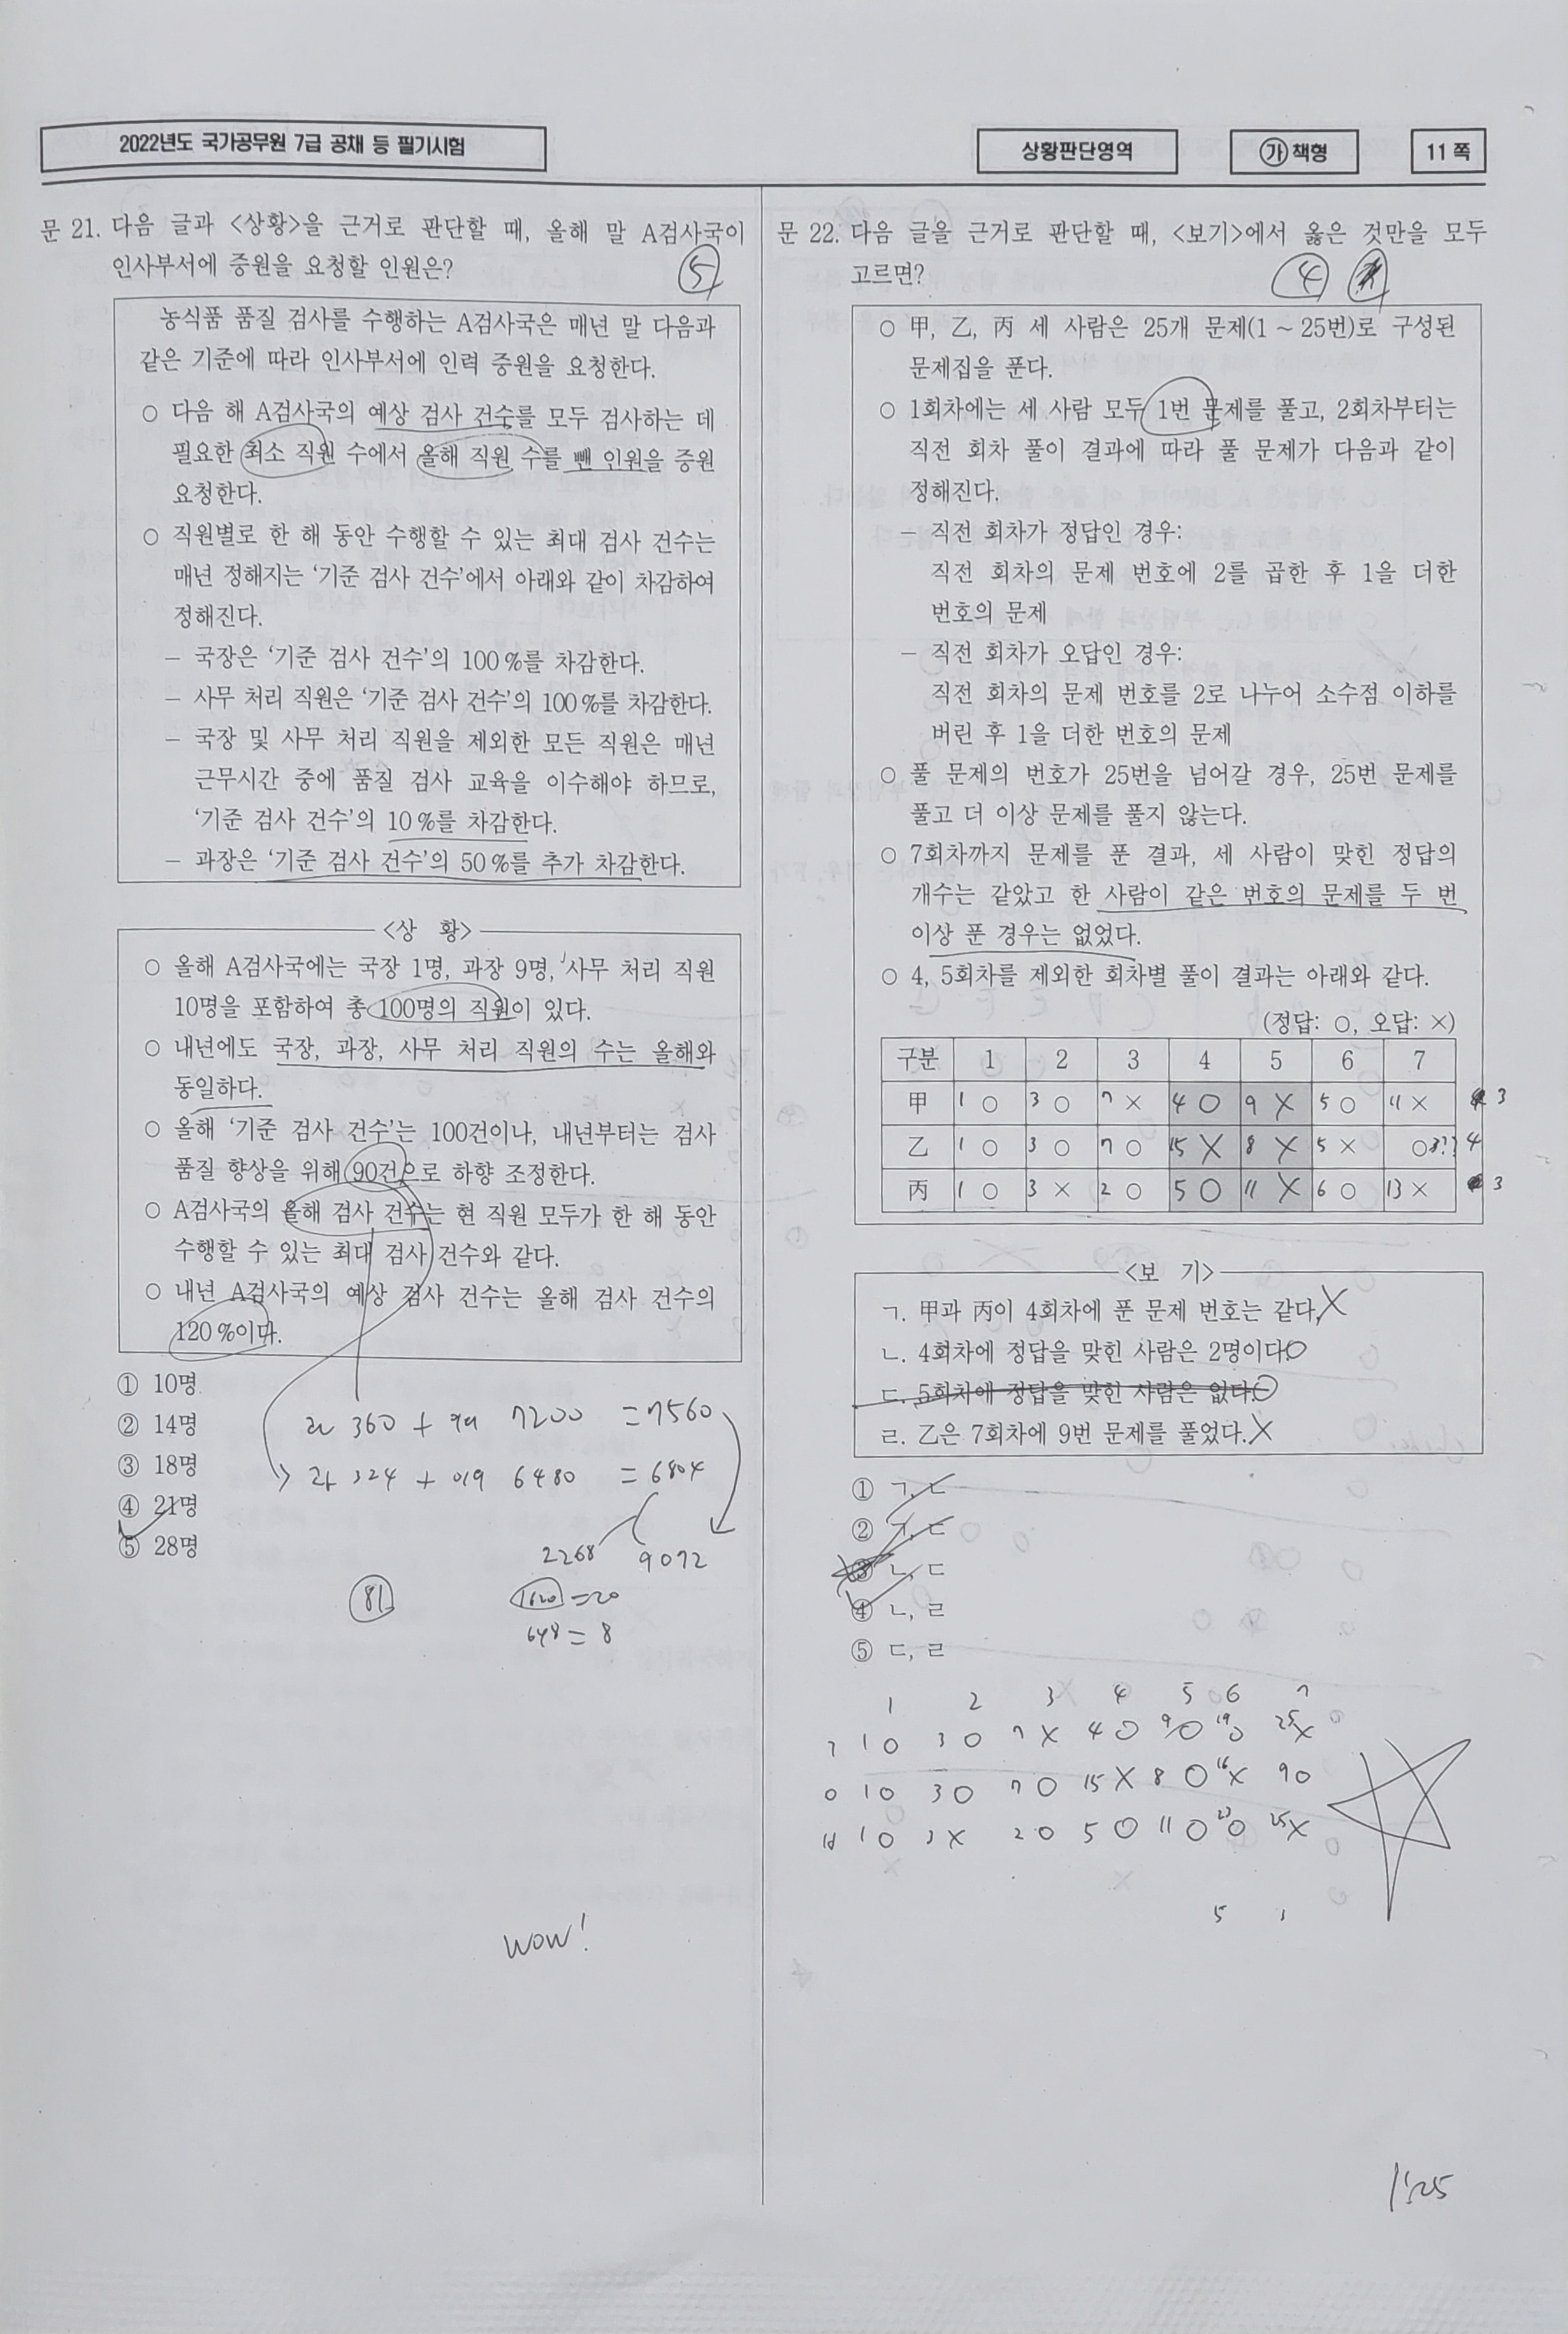 2022년도 국가공무원 7급 공채 등 필기시험
상황판단영역
㉮ 책형
11 쪽
문 21. 다음 글과 <상황>을 근거로 판단할 때, 올해 말 A검사국이
인사부서에 증원을 요청할 인원은?
⑤
농식품 품질 검사를 수행하는 A검사국은 매년 말 다음과
같은 기준에 따라 인사부서에 인력 증원을 요청한다.
○ 다음 해 A검사국의 예상 검사 건수를 모두 검사하는 데
필요한 최소 직원 수에서 올해 직원 수를 뺀 인원을 증원
요청한다.
○ 직원별로 한 해 동안 수행할 수 있는 최대 검사 건수는
매년 정해지는 ‘기준 검사 건수’에서 아래와 같이 차감하여
정해진다.
－ 국장은 ‘기준 검사 건수’의 100 %를 차감한다.
－ 사무 처리 직원은 ‘기준 검사 건수’의 100 %를 차감한다.
－ 국장 및 사무 처리 직원을 제외한 모든 직원은 매년
근무시간 중에 품질 검사 교육을 이수해야 하므로,
‘기준 검사 건수’의 10 %를 차감한다.
－ 과장은 ‘기준 검사 건수’의 50 %를 추가 차감한다.
<상 황>
○ 올해 A검사국에는 국장 1명, 과장 9명, 사무 처리 직원
10명을 포함하여 총 100명의 직원이 있다.
○ 내년에도 국장, 과장, 사무 처리 직원의 수는 올해와
동일하다.
○ 올해 ‘기준 검사 건수’는 100건이나, 내년부터는 검사
품질 향상을 위해 90건으로 하향 조정한다.
○ A검사국의 올해 검사 건수는 현 직원 모두가 한 해 동안
수행할 수 있는 최대 검사 건수와 같다.
○ 내년 A검사국의 예상 검사 건수는 올해 검사 건수의
120 %이다.
① 10명
② 14명
③ 18명
④ 21명
⑤ 28명
360 + 7200 = 7560
324 + 6480 = 6804
2268 9072
81
1620 = 20
648 = 8
WOW!
문 22. 다음 글을 근거로 판단할 때, <보기>에서 옳은 것만을 모두
고르면?
④
○ 甲, 乙, 丙 세 사람은 25개 문제(1 ~ 25번)로 구성된
문제집을 푼다.
○ 1회차에는 세 사람 모두 1번 문제를 풀고, 2회차부터는
직전 회차 풀이 결과에 따라 풀 문제가 다음과 같이
정해진다.
－ 직전 회차가 정답인 경우:
직전 회차의 문제 번호에 2를 곱한 후 1을 더한
번호의 문제
－ 직전 회차가 오답인 경우:
직전 회차의 문제 번호를 2로 나누어 소수점 이하를
버린 후 1을 더한 번호의 문제
○ 풀 문제의 번호가 25번을 넘어갈 경우, 25번 문제를
풀고 더 이상 문제를 풀지 않는다.
○ 7회차까지 문제를 푼 결과, 세 사람이 맞힌 정답의
개수는 같았고 한 사람이 같은 번호의 문제를 두 번
이상 푼 경우는 없었다.
○ 4, 5회차를 제외한 회차별 풀이 결과는 아래와 같다.
(정답: ○, 오답: ×)
구분 1 2 3 4 5 6 7
甲 1 ○ 3 ○ 7 × 4 ○ 9 × 5 ○ 11 × 3
乙 1 ○ 3 ○ 7 ○ 15 × 8 × 5 × ○ 3?? 4
丙 1 ○ 3 × 2 ○ 5 ○ 11 × 6 ○ 13 × 3
<보 기>
ㄱ. 甲과 丙이 4회차에 푼 문제 번호는 같다. ×
ㄴ. 4회차에 정답을 맞힌 사람은 2명이다. ○
ㄷ. 5회차에 정답을 맞힌 사람은 없다. ○
ㄹ. 乙은 7회차에 9번 문제를 풀었다. ×
① ㄱ, ㄴ
② ㄱ, ㄷ
③ ㄴ, ㄷ
④ ㄴ, ㄹ
⑤ ㄷ, ㄹ
1 2 3 4 5 6 7
1 ○ 3 ○ 7 × 4 ○ 9 ○ 19 ○ 25 ×
1 ○ 3 ○ 7 ○ 15 × 8 ○ 16 × 9 ○
1 ○ 3 × 2 ○ 5 ○ 11 ○ 23 ○ 25 ×
5
1:25